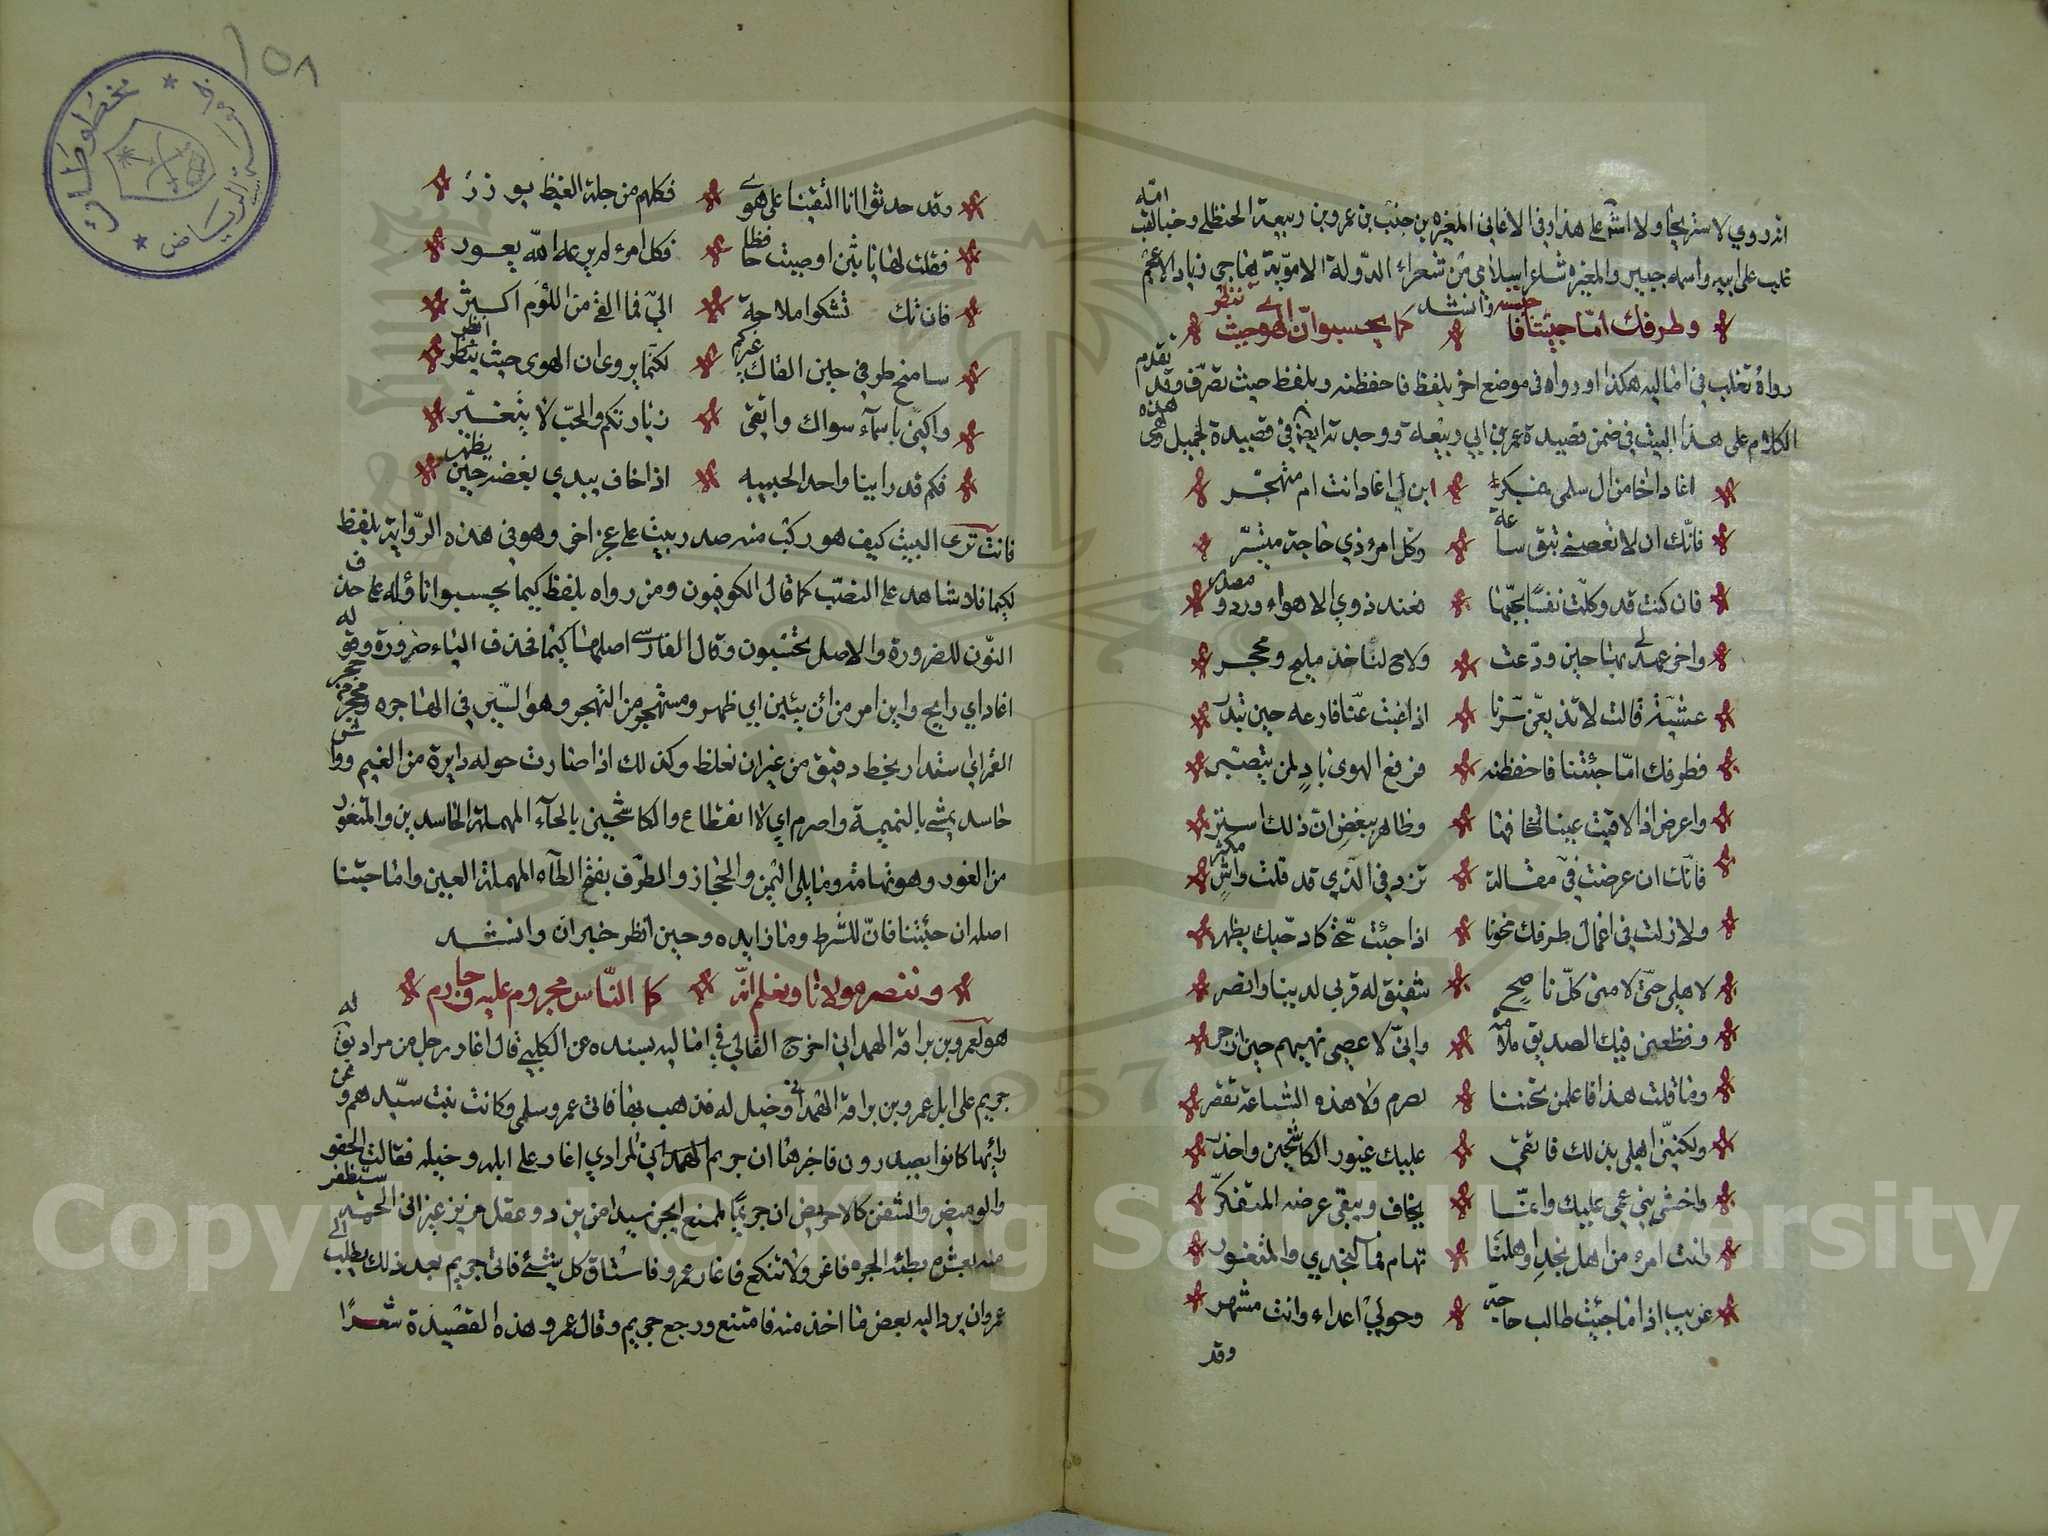 انه روي لاستريحا ولا اشم على هذا وفي الاغاني المغيرة بن حنبا بن عمرو بن ربيعة الحنظلي وحبنا لقب امه
غلب على ابيه واسمه جبير والمغيرة شاعر اسلامي من شعراء الدولة الاموية يهاجي زياد الاعجم
وانشد
وطرفك اما جيتنا فاحبسنه كما يحسبوا ان الهوى حيث تنظر
رواه ثعلب في اماليه هكذا ورواه في موضع اخر بلفظ فاحفظنه وبلفظ حيث تصرف وقد تقدم
الكلام على هذا البيت في ضمن قصيدة عمر بن ابي ربيعة ووجدته ايضا في قصيدة لجميل وهي هذه
اغاد اخا من ال سلمى فمبكر ابن لي اغاد انت ام متهجر
فانك ان لا تقضني ثنى ساعة وكل امرء ذي حاجة ميسر
فان كنت قد وكلت نفسا بحبها فعند ذوي الاهواء ورد ومصدر
واخر عهد لي بها حين ودعت ولاح لنا خد مليح ومحجر
عشية قالت لا تذيعن سرنا اذا غبت عنا فارعه حين تدبر
فطرفك اما جئتنا فاحفظنه فزيغ الهوى باد لمن يتبصر
واعرض اذا لاقيت عينا تخافها وظاهر ببغض ان ذلك استر
فانك ان عرضت في مقالة تزد في الذي قد قلت واش مكثر
ولا زلت في اعمال طرفك نحونا اذا جئت حتى كاد حبك يظهر
لاهلي حتى لامني كل ناصح شفيق له قربى لدينا وانصر
وقطعني فيك الصديق ملامة واني لاعصي نهيهم حين ازجر
وما قلت هذا فاعلمن تجننا لصرم ولا هذه الساعة تقصر
ولكنني اهلي بذلك فاتقي عليك عيون الكاشحين واحذر
واخشى بني عمي عليك وانما يخاف ويبقي عرضه المتفكر
وانت امرء من اهل نجد واهلنا تهام فما النجدي والمتغور
غريب اذا ما جئت طالب حاجة وحولي اعداء وانت مشهر
وقد
وقد حدثوا انا التقينا على هوى فكلهم من حلة الغيظ يوزر
فقلت لها يا بثن اوصيت حافظا فكل امرء لم يرعه الله يعور
فان تك تشكوا ملاحة الي فما القى من اللوم اكثر
سامنح طرفي حين القاك غيركم لكنما يروى ان الهوى حيث ينظر انظر
واكني باسماء سواك واتقي زيارتكم والحب لا يتغير
فكم قد راينا واحد الحبيبه اذا خاف يبدي بغضه حين يظهر
فانت ترى البيت كيف هو ركب منه صدر بيت على عجز اخر وهو في هذه الرواية بلفظ
لكيما فلا شاهد على النصب كما قال الكوفيون ومن رواه بلفظ كيما يحسبوا فاوله على حذف
النون للضرورة والاصل يحسبون وقال الفارسي اصلها كيما فحذف الياء ضرورة وقوله
اغاد اي رايح وابن امر من ابن يبين اي ظهر ومتهجر من التهجر وهو السير في الهاجرة ومحجر محجر
القمر اي ستدار بخط دقيق من غير ان تغلظ وكذلك اذا صارت حوله دايرة من الغيم وواش
حاسد يمشي بالنميمة واصرم اي لا انقطاع والكاشحين بالحاء المهملة الحاسدين والمتغور
من الغور وهو تهامة وما يلي اليمن والحجاز والطرف بفتح الطاء المهملة العين واما جئتنا
اصله ان جئتنا فان للشرط وما زايدة وحين انظر خبر ان وانشد
وننصر مولانا ونعلم انه كما الناس مجروم عليه وجارم
هو لعمرو بن براقة الهمداني اخرج القالي في اماليه بسنده عن الكلبي قال اغار رجل من مراد يقال له
حريم على ابل عمرو بن براقة الهمداني وخيل له فذهب بها فاتى عمرو سلمى وكانت بنت سيدهم وعن
رايها كانوا يصدرون فاخبرها ان حريم المرادي اغار على ابله وخيله فقالت والخفو
والوميض والشفق كالاحريض ان حريما لمنيع الحيز سيد مزيز ذو معقل حريز غير اني الحمة ستظفر
منه بعثرة بطيئة الجبرة فاغر ولا تنكع فاغار عمرو فاستاق كل شيء فاتى حريم بعد ذلك يطلب الى
عمرو ان يرد اليه بعض ما اخذ منه فامتنع ورجع حريم وقال عمرو هذه القصيدة شعرا
مخطوطات
الرياض
١٥٨
Copyright © King Saud University
1957